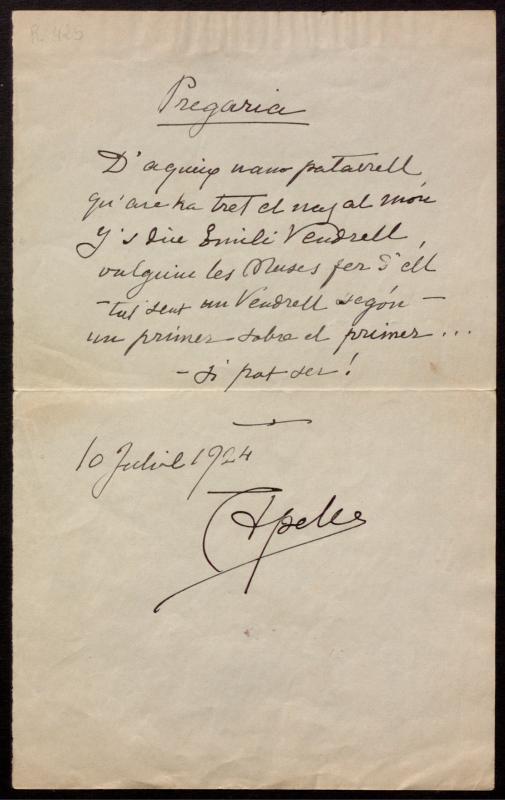 R. 425
Pregaria
D'aqueix nano patatxell
qu'are ha tret el nas al món
Y's diu Emili Vendrell,
vulguin les Muses fer d'ell
- tot sent un Vendrell segón -
un primer sobre el primer...
- si pot ser!
10 Juliol 1924
Apeles